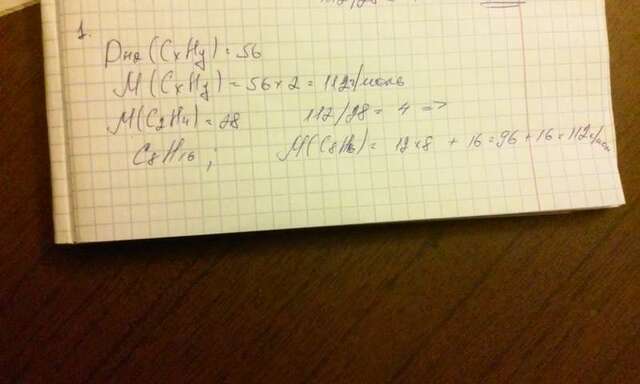 1.
Dн2(CxHy) = 56
M(CxHy) = 56×2 = 112г/моль
M(C2H4) = 28 112/28 = 4 =>
C8H16; M(C8H16) = 12×8 + 16 = 96 + 16 = 112г/моль